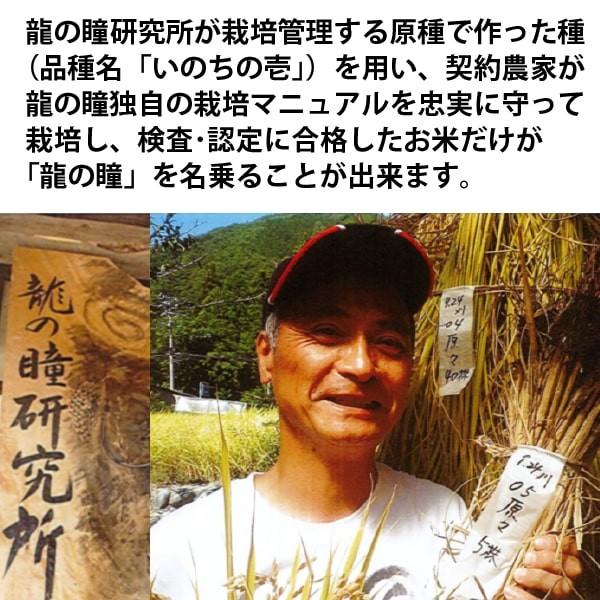 龍の瞳研究所が栽培管理する原種で作った種
（品種名「いのちの壱」）を用い、契約農家が
龍の瞳独自の栽培マニュアルを忠実に守って
栽培し、検査･認定に合格したお米だけが
「龍の瞳」を名乗ることが出来ます。
龍の瞳研究所
9.24
04
原々
40株
05
原々
5株